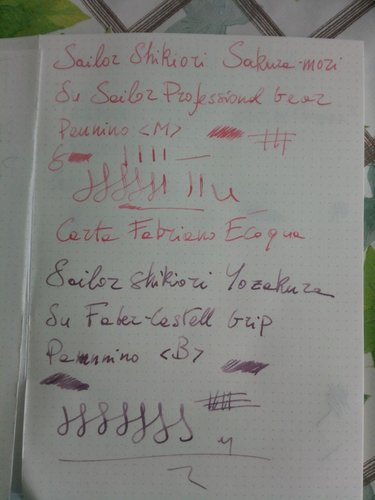 Sailor Shikiori Sakura-mori
Su Sailor Professional Gear
Pennino <M>
Carta Fabriano Ecoqua
Sailor Shikiori Yozakura
Su Faber-Castell Grip
Pennino <B>